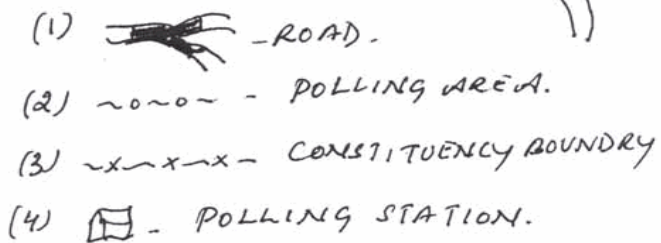 (1) - ROAD.
(2) ~o~o~ - POLLING AREA.
(3) ~x~x~x~ CONSTITUENCY BOUNDRY
(4) - POLLING STATION.